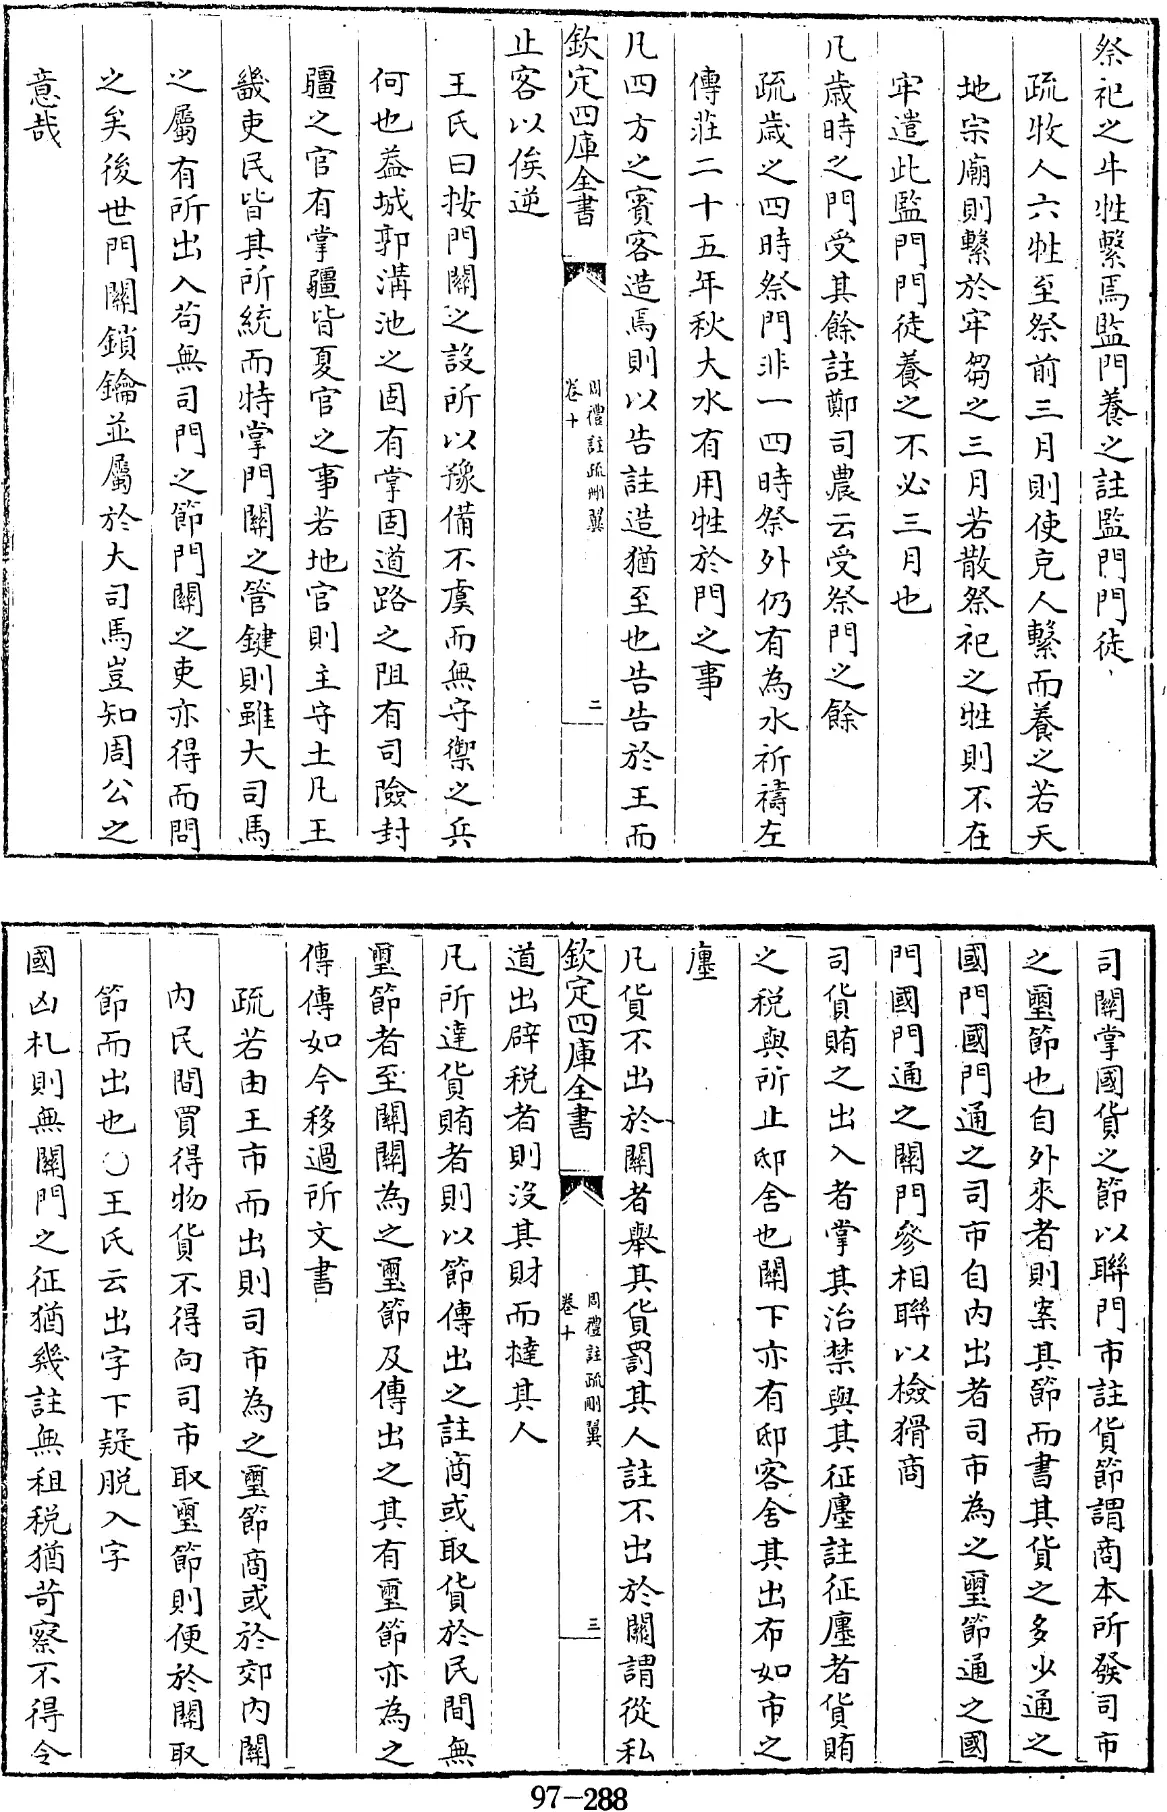 祭祀之牛牲繫焉監門養之註監門門徒
疏牧人六牲至祭前三月則使充人繫而養之若天
地宗廟則繫於牢芻之三月若散祭祀之牲則不在
牢遣此監門門徒養之不必三月也
凡歲時之門受其餘註鄭司農云受祭門之餘
疏歲之四時祭門非一四時祭外仍有為水祈禱左
傳莊二十五年秋大水有用牲於門之事
凡四方之賓客造焉則以告註造猶至也告告於王而
欽定四庫全書
周禮註疏刪翼
卷十
二
止客以俟逆
王氏曰按門關之設所以豫備不虞而無守禦之兵
何也葢城郭溝池之固有掌固道路之阻有司險封
疆之官有掌疆皆夏官之事若地官則主守土凡王
畿吏民皆其所統而特掌門關之管鍵則雖大司馬
之屬有所出入苟無司門之節門關之吏亦得而問
之矣後世門關鎖鑰並屬於大司馬豈知周公之
意哉
司關掌國貨之節以聯門市註貨節謂商本所發司市
之璽節也自外來者則案其節而書其貨之多少通之
國門國門通之司市自内出者司市為之璽節通之國
門國門通之關門參相聯以檢猾商
司貨賄之出入者掌其治禁與其征廛註征廛者貨賄
之税與所止邸舍也關下亦有邸客舍其出布如市之
廛
凡貨不出於關者舉其貨罰其人註不出於關謂從私
欽定四庫全書
周禮註疏刪翼
卷十
三
道出辟税者則沒其財而撻其人
凡所達貨賄者則以節傳出之註商或取貨於民間無
璽節者至關關為之璽節及傳出之其有璽節亦為之
傳傳如今移過所文書
疏若由王市而出則司市為之璽節商或於郊内關
内民間買得物貨不得向司市取璽節則便於關取
節而出也○王氏云出字下疑脱入字
國凶札則無關門之征猶幾註無租税猶苛察不得令
97-288